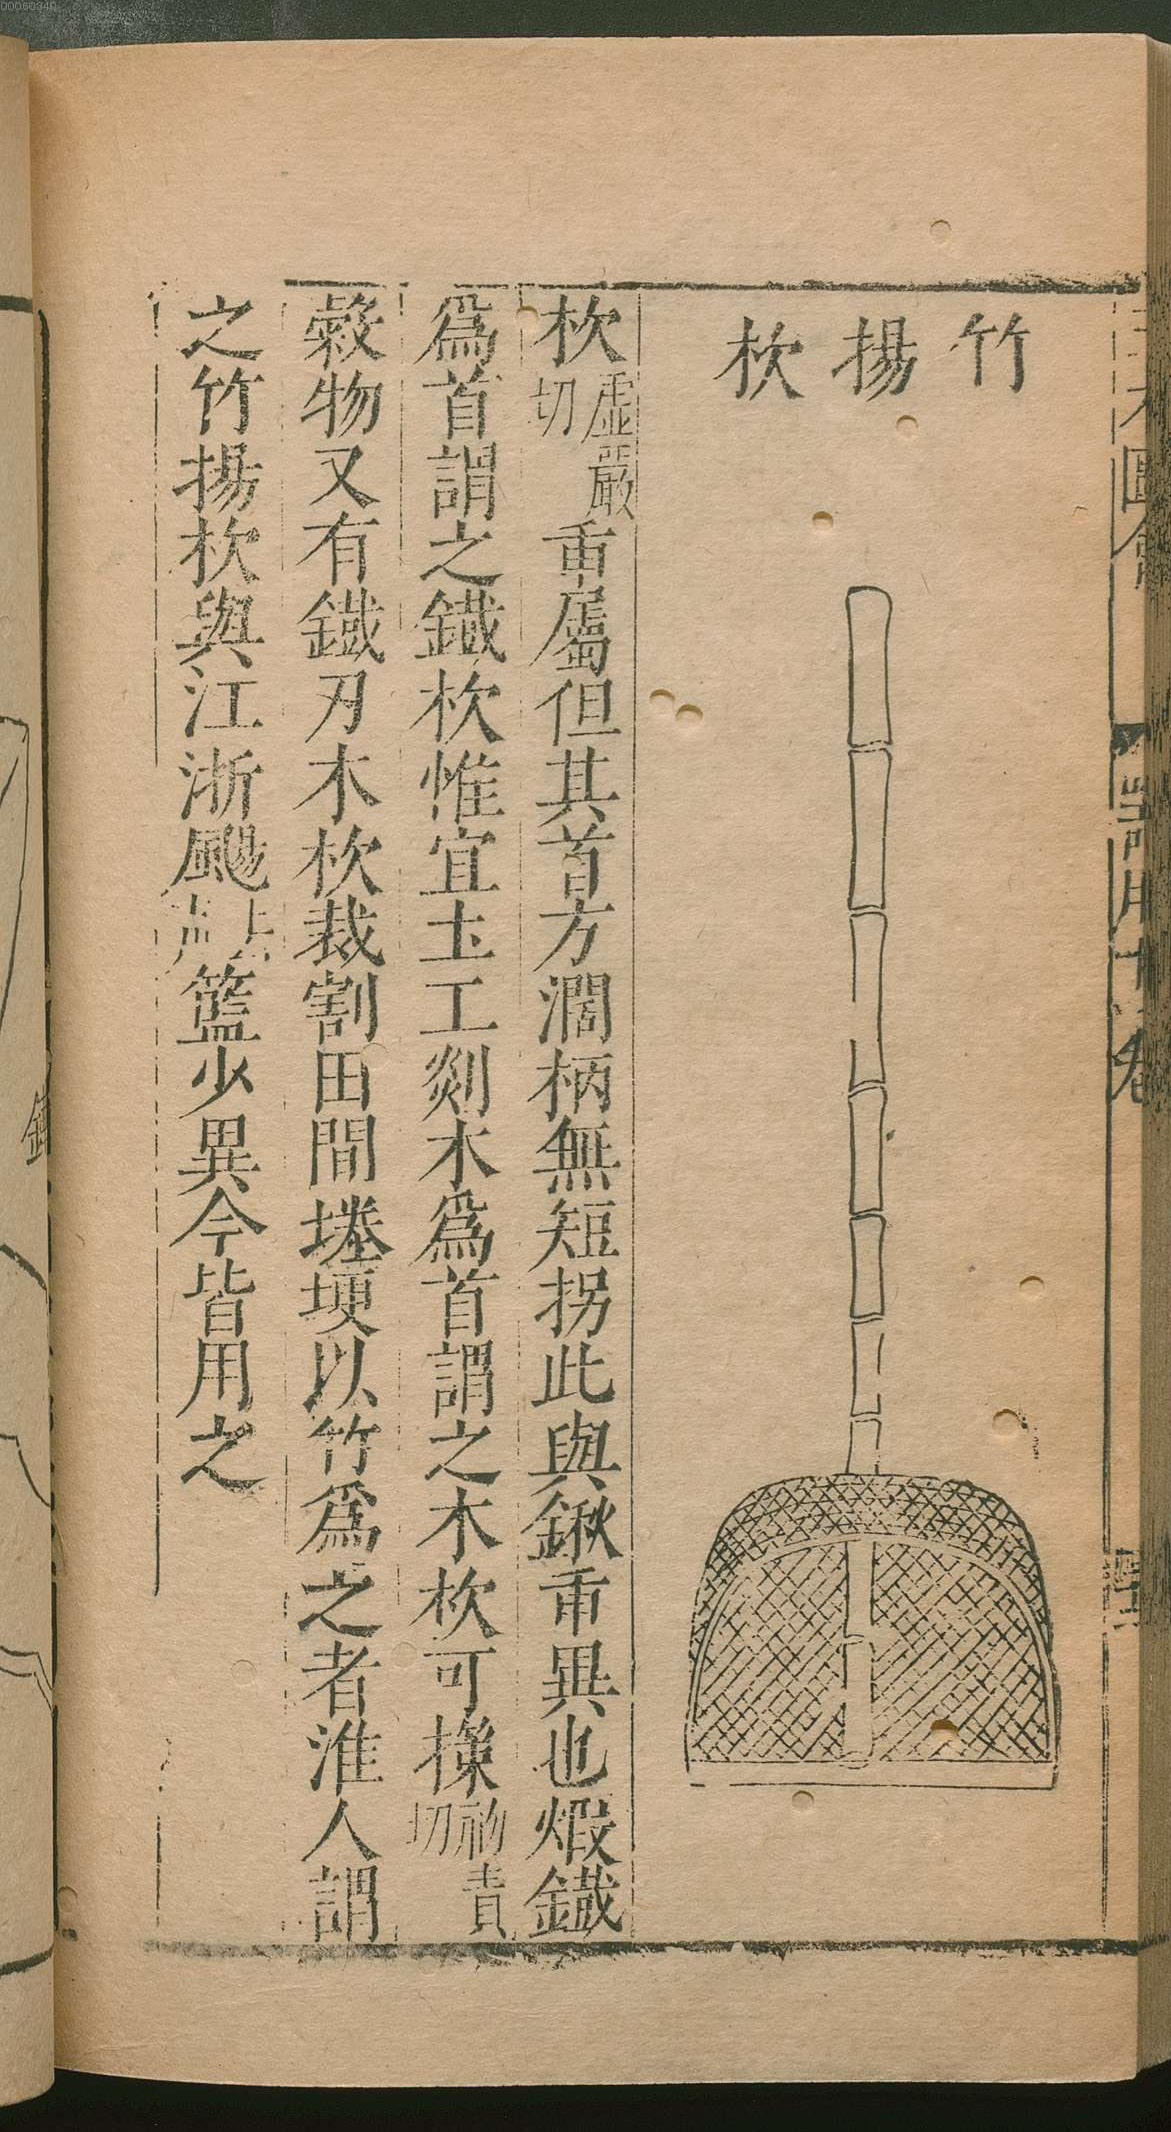 竹揚杴
杴虛嚴切臿屬但其首方濶柄無短拐此與鍬臿異也煅鐵
爲首謂之鐵杴惟宜土工剡木爲首謂之木杴可㩒初責切
穀物又有鐵刃木杴裁割田間塍埂以竹爲之者淮人謂
之竹揚杴與江浙颺去聲籃少異今皆用之
圖會
器用十一卷
00060340